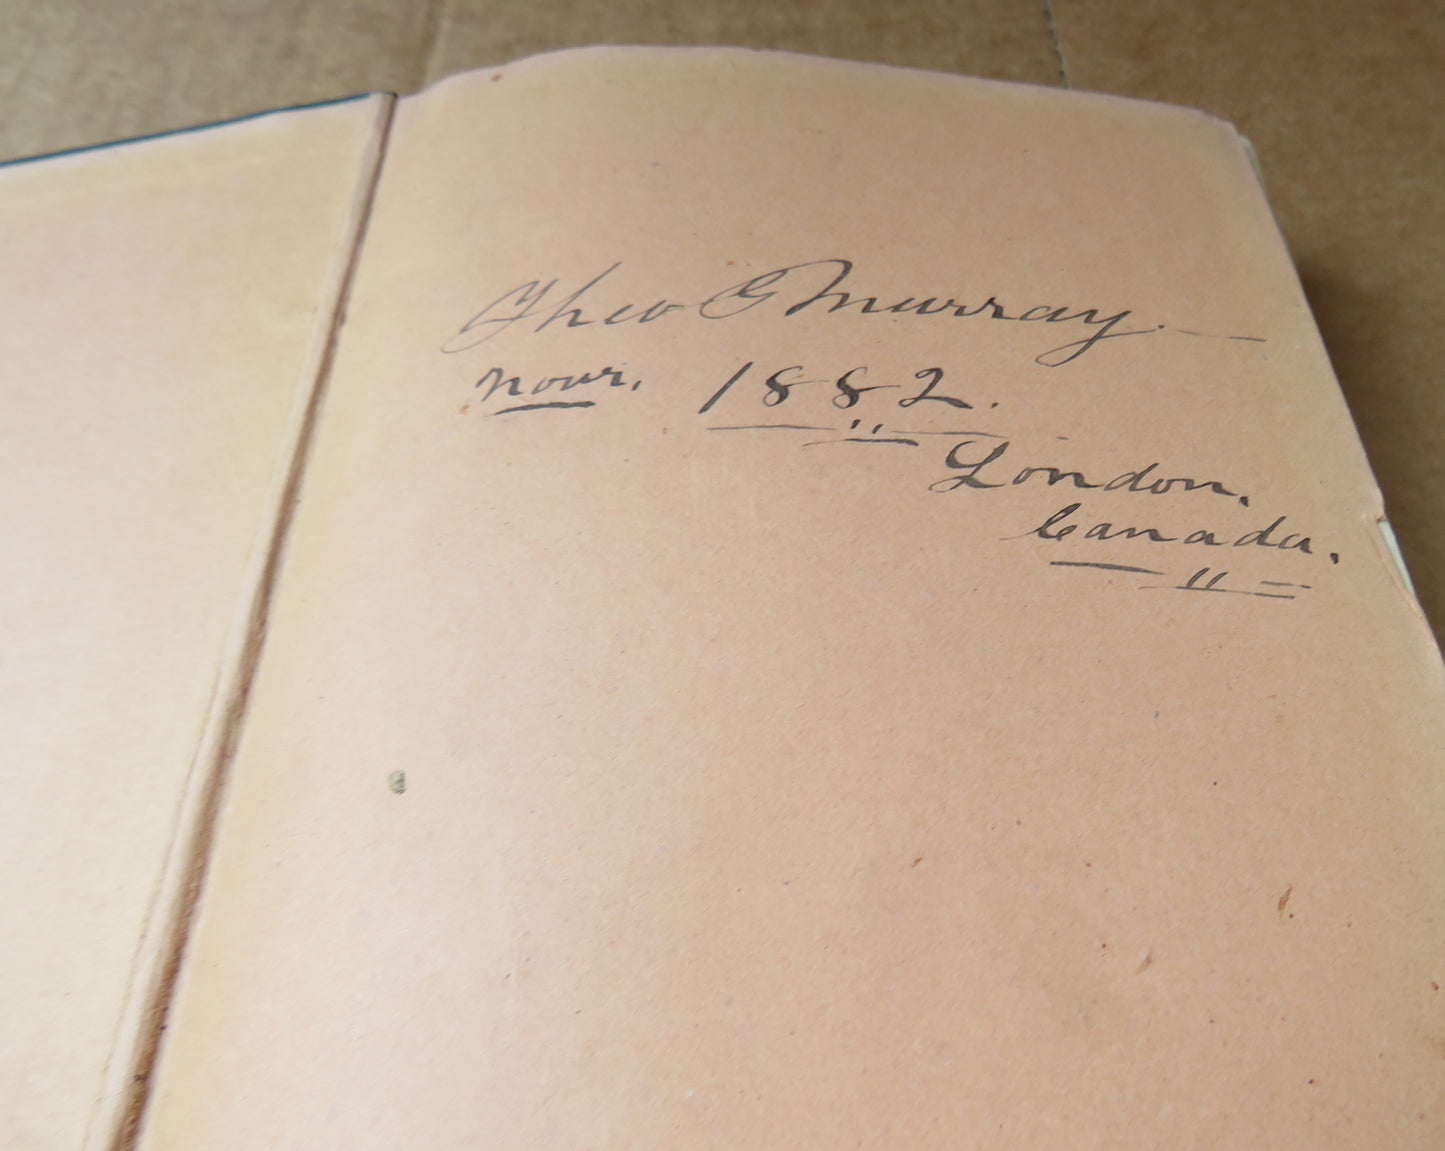 Theo G Murray.
Novr. 1882.
London.
Canada.